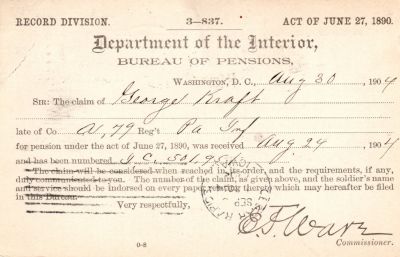 RECORD DIVISION. 3—837. ACT OF JUNE 27, 1890.
Department of the Interior,
BUREAU OF PENSIONS,
WASHINGTON, D. C., Aug 30, 1904
SIR: The claim of George Kraft
late of Co A, 79 Reg't Pa Inf
for pension under the act of June 27, 1890, was received Aug 29 1904
and has been numbered I.C.
The claim will be considered when reached in its order, and the requirements, if any,
duly communicated to you. The number of the claim, as given above, and the soldier's name
and service should be indorsed on every paper relating thereto which may hereafter be filed
in this Bureau.
Very respectfully,
E. F. Ware
Commissioner.
0-8
SEP